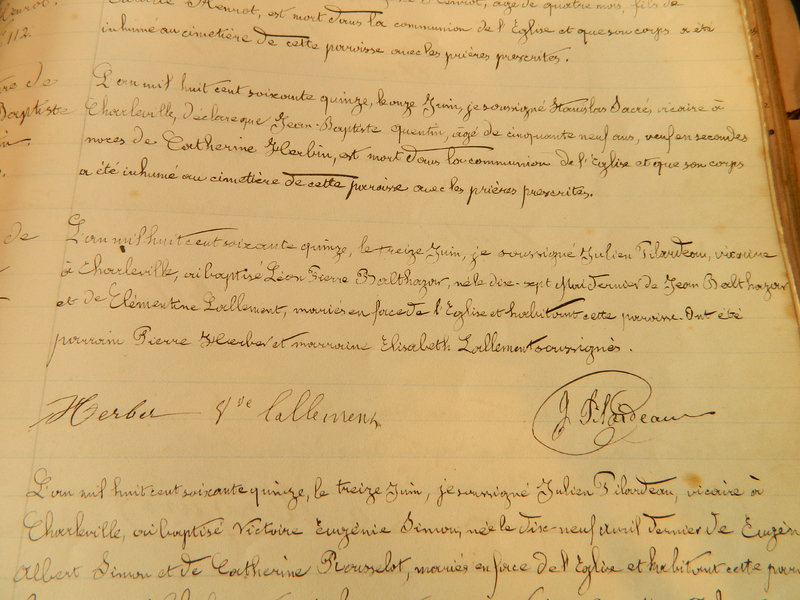 Henrot, est mort dans la communion de l'Eglise et que son corps a été
Henrot.
112.
inhumé au cimetière de cette paroisse avec les prières prescrites.
L'an mil huit cent soixante quinze, le onze Juin, je soussigné Stanislas Sacré, vicaire à
Baptiste
Charleville, déclare que Jean-Baptiste Quentin, âgé de cinquante neuf ans, veuf en secondes
noces de Catherine Herbin, est mort dans la communion de l'Eglise et que son corps
a été inhumé au cimetière de cette paroisse avec les prières prescrites.
de
L'an mil huit cent soixante quinze, le treize Juin, je soussigné Julien Pilardeau, vicaire
à Charleville, ai baptisé Léon Pierre Balthazar, né le dix-sept Mai dernier de Jean Balthazar
et de Clémentine Lallement, mariés en face de l'Eglise et habitant cette paroisse. Ont été
parrain Pierre Herber et marraine Elisabeth Lallement soussignés.
Herber Vve lallement J Pilardeau
L'an mil huit cent soixante quinze, le treize Juin, je soussigné Julien Pilardeau, vicaire à
Charleville, ai baptisé Victoire Eugénie Simon, née le dix-neuf avril dernier de Eugèn
Albert Simon et de Catherine Rousselot, mariés en face de l'Eglise et habitant cette paroi